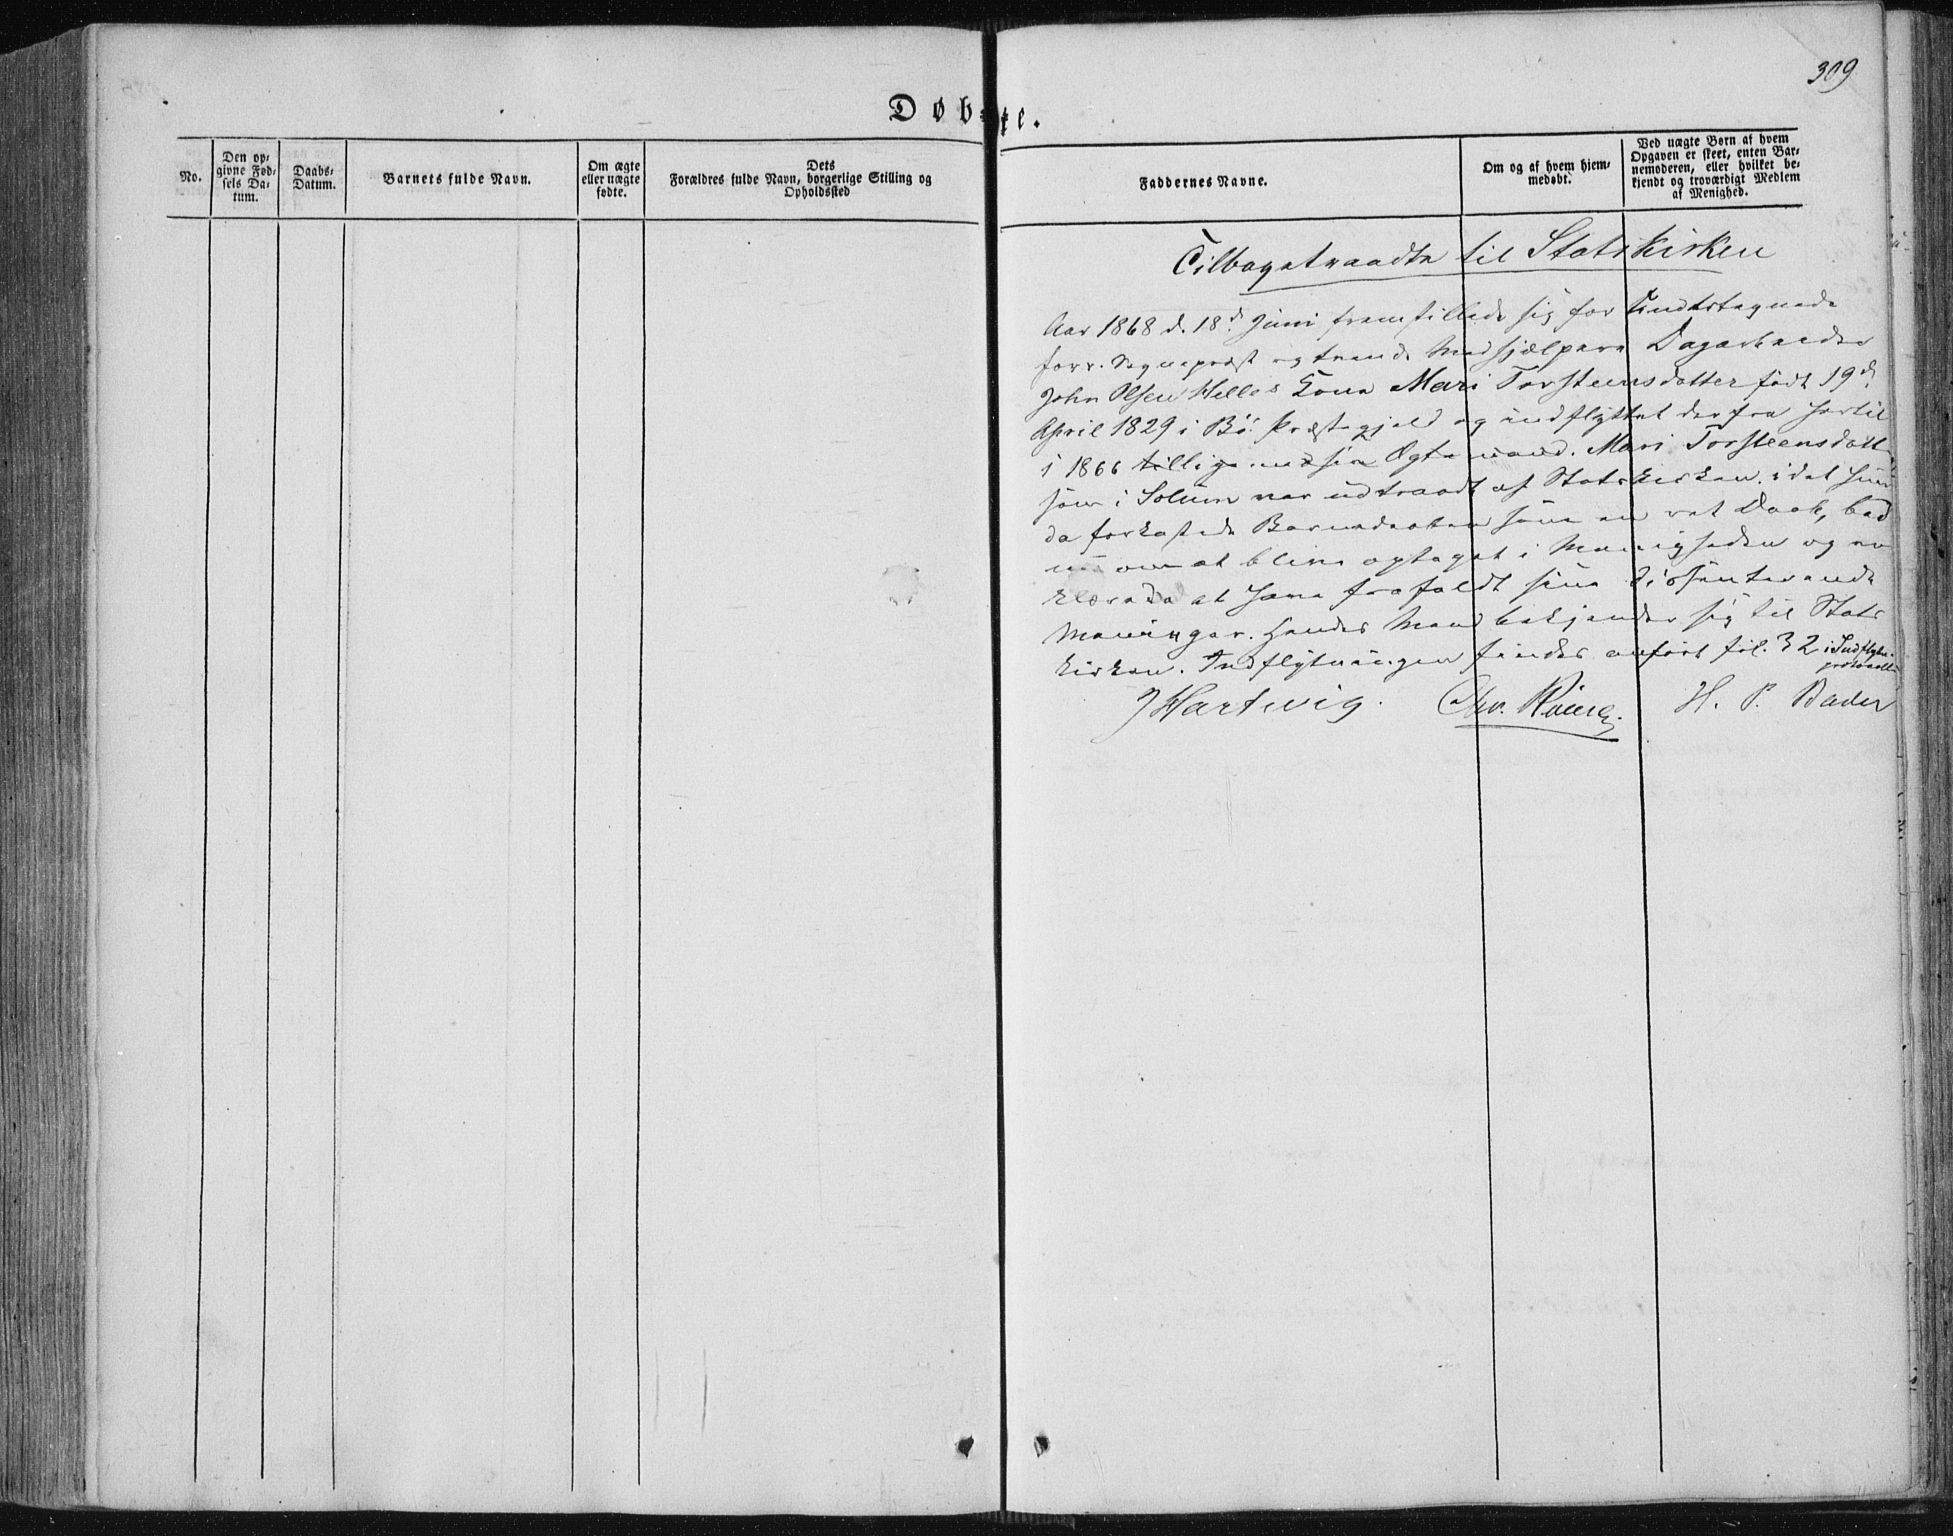 309
Døbte.
No.
Den op-
givne Fød-
sels Da-
tum.
Daabs-
Datum.
Barnets fulde Navn.
Om ægte
eller uægte
fødte.
Dets
Forældres fulde Navn, borgerlige Stilling og
Opholdssted
Faddernes Navne.
Om og af hvem hjem-
medøbt.
Ved uægte Børn af hvem
Opgaven er skeet, enten Bar-
nemoderen, eller hvilket be-
kjendt og troværdigt Medlem
af Menighed.
Tilbagetraadte til Statskirken
Aar 1868 d. 18d Juni fremstillede sig for Undertegnede
Sognepræst og tvende Medhjælpere Dagarbeider
John Olsen Helles Kone Mari Torsteensdatter født 19d
April 1829 i Bø Præstegjeld og indflyttet derfra hertil
i 1866 tilligemed sin Ægtemand. Mari Torsteensdatter
som i Solum var udtraadt af Statskirken, idet hun
da forkastede Barnedaaben som en ret Daab, bad
nu om at blive optaget i Menigheden og er
klærede at have frafaldt sine dissenterende
Meninger. Hendes Mand bekjender sig til Stats
kirken. Indflytningen findes anført fol. 32 i Indflytn.
protocollen
J Hartwig. Chr. H. P. Bader